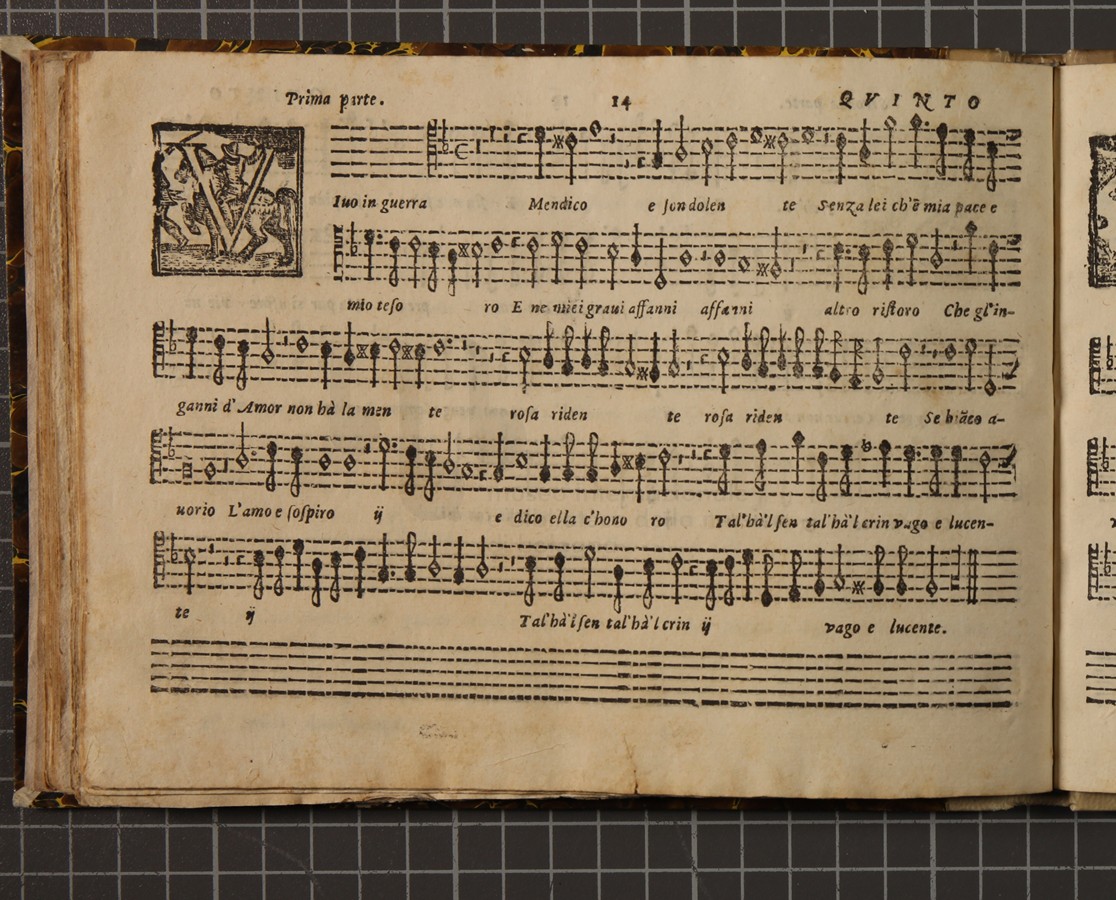 Prima parte. 14 QVINTO
V
Iuo in guerra Mendico e son dolen te Senza lei ch'è mia pace e
mio teso ro E ne miei graui affanni affanni altro ristoro Che gl'in-
ganni d'Amor non hà la men te rosa riden te rosa riden te Se biāco a-
uorio L'amo e sospiro ij e dico ella c'hono ro Tal'hà'l sen tal'hà'l crin vago e lucen-
te ij Tal'hà'l sen tal'hà'l crin ij vago e lucente.